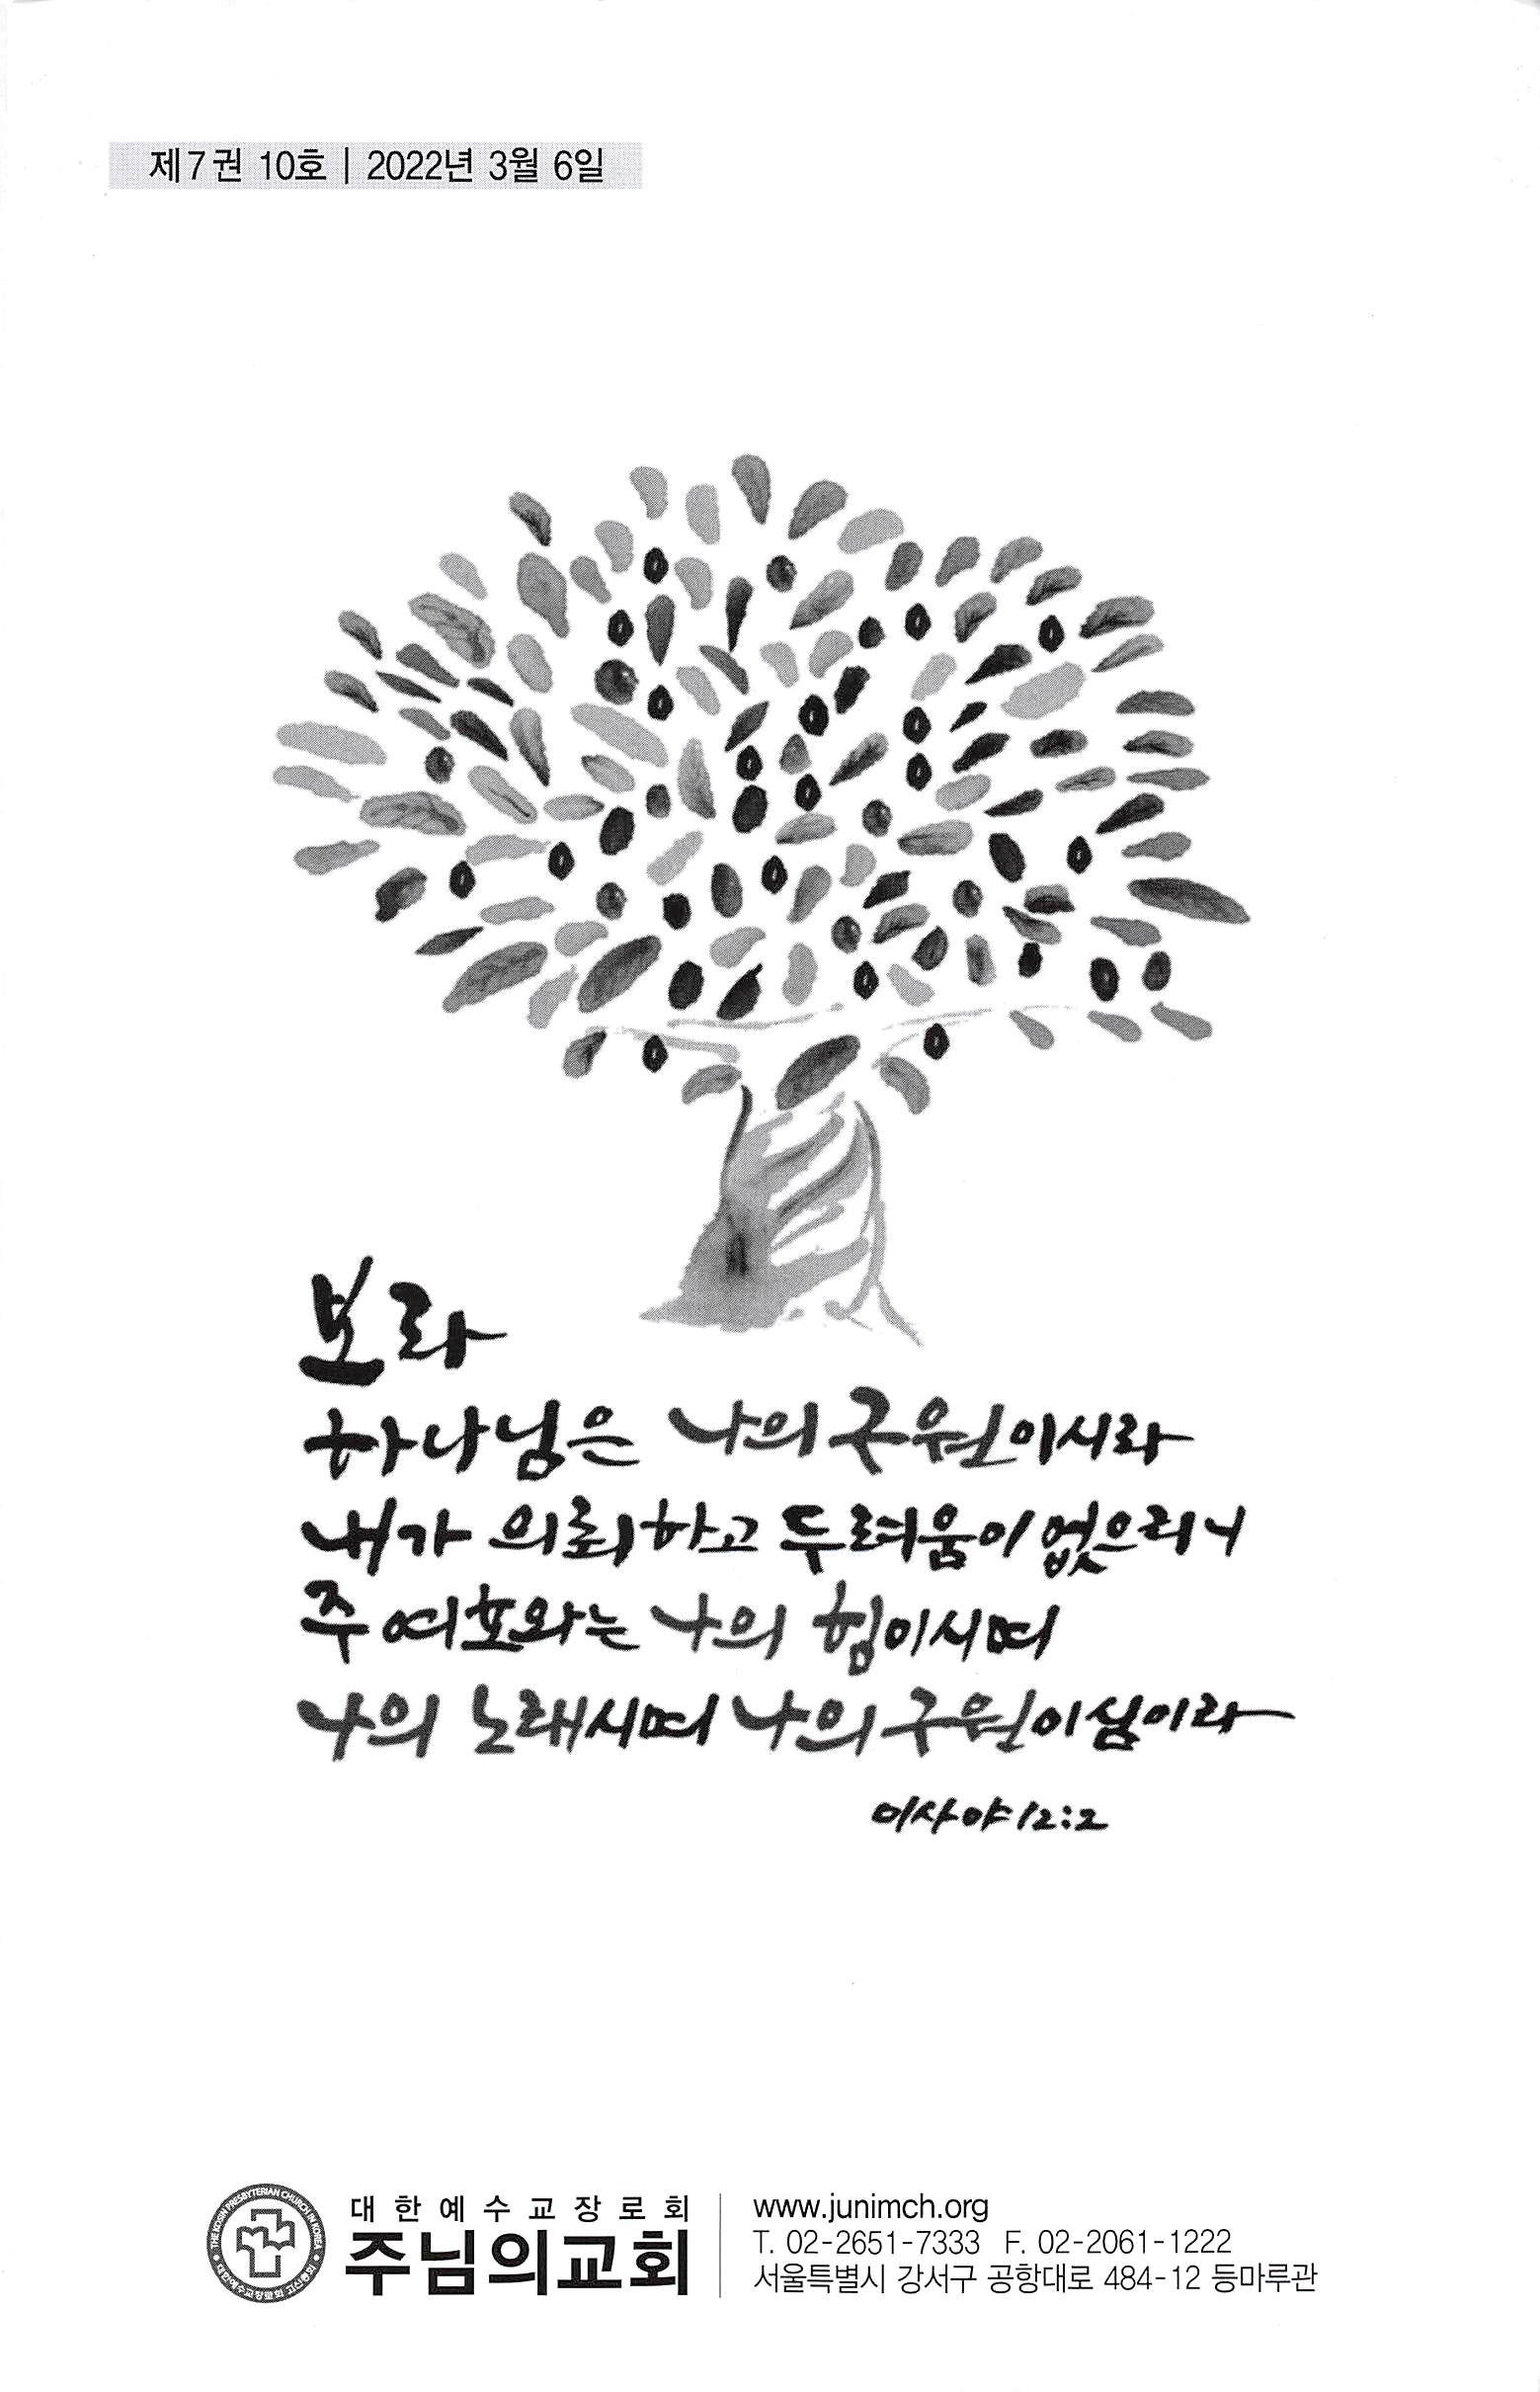 제7권 10호 | 2022년 3월 6일
보라
하나님은 나의 구원이시라
내가 의뢰하고 두려움이 없으리니
주 여호와는 나의 힘이시며
나의 노래시며 나의 구원이심이라
이사야 12:2
THE KOSIN PRESBYTERIAN CHURCH IN KOREA
대한예수교장로회 고신총회
대한예수교장로회
주님의교회
www.junimch.org
T. 02-2651-7333 F. 02-2061-1222
서울특별시 강서구 공항대로 484-12 등마루관